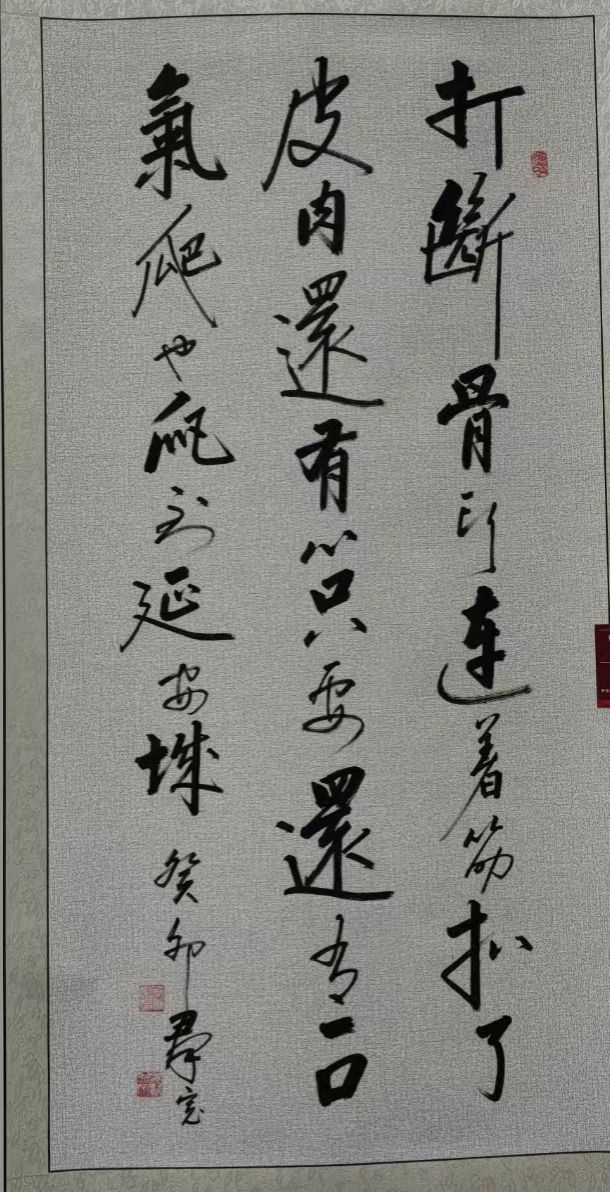 打斷骨頭連着筋扒了
皮肉還有心只要還有一口
氣爬也爬到延安城 癸卯